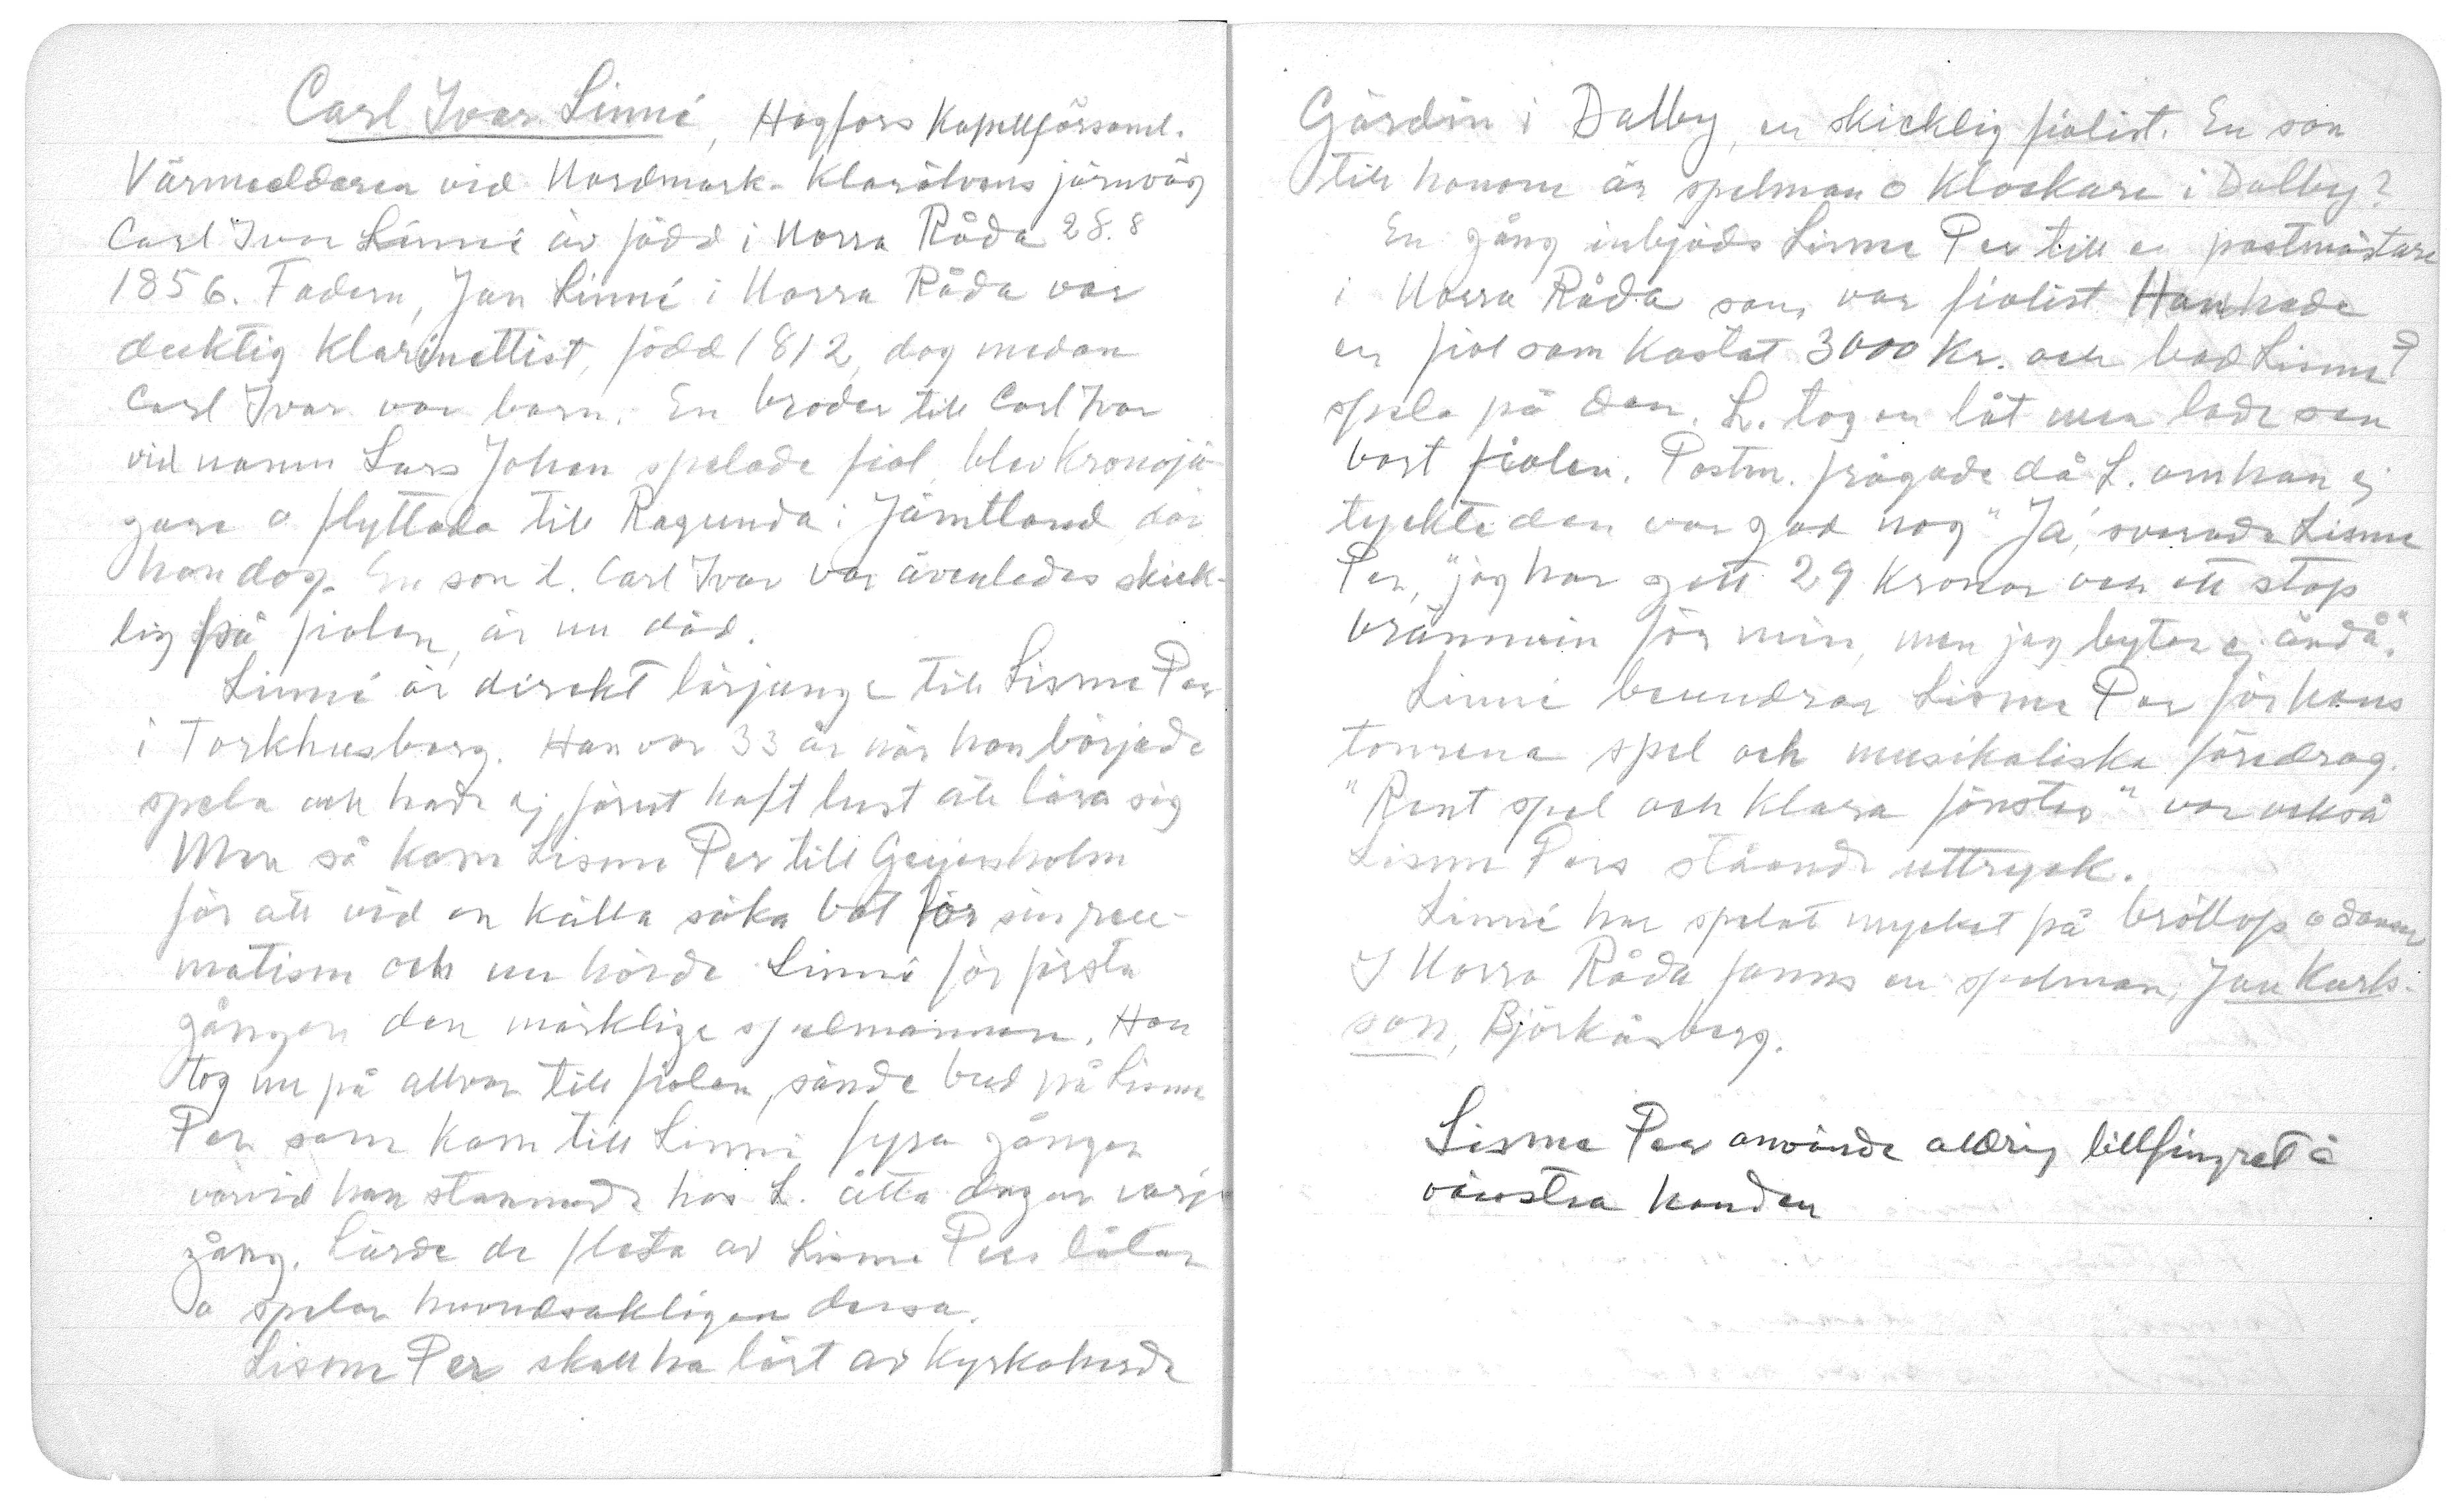 Carl Ivar Linné, Hagfors Kapellförsaml.
Värmeeldaren vid Nordmark-Klarälvens järnväg
Carl Ivar Linné är född i Norra Råda 28.8
1856. Fadern, Jan Linné i Norra Råda var
duktig klarinettist, född 1812, dog medan
Carl Ivar var barn. En broder till Carl Ivar
vid namn Lars Johan spelade fiol, blev kronojä-
gare o flyttade till Ragunda i Jämtland där
han dog. En son t. Carl Ivar var ävenledes skick-
lig på fiolen, är nu död.
Linné är direkt lärjunge till Lisme Per
i Torkhusberg. Han var 33 år när han började
spela och hade ej förut haft lust att lära sig
Men så kom Lisme Per till Geijersholm
för att vid en källa söka bot för sin reu-
matism och nu hörde Linné för första
gången den märklige spelmannen. Han
tog nu på allvar till fiolen, sände bud på Lisme
Per som kom till Linné fyra gånger
varvid han stannade hos L. åtta dagar varje
gång. Lärde de flesta av Lisme Pers låtar
o spelar huvudsakligen dessa.
Lisme Per skall ha lärt av kyrkoherde
Gärdin i Dalby, en skicklig fiolist. En son
till honom är spelman o klockare i Dalby?
En gång inbjöds Lisme Per till en postmästare
i Norra Råda som var fiolist Han hade
en fiol som kostat 3000 kr. och bad Lisme P
spela på den. L. tog en låt men lade sen
bort fiolen. Postm. frågade då L. om han ej
tyckte den var god nog "Ja", svarade Lisme
Per, "jag har gett 29 kronor och ett stop
brännvin för min, men jag byter ej ändå."
Linné beundrar Lisme Per för hans
tonrena spel och musikaliska föredrag.
"Rent spel och klara fönster" var också
Lisme Pers stående uttryck.
Linné har spelat mycket på bröllop o danser
I Norra Råda fanns en spelman, Jan Karls-
son, Björkåsberg.
Lisme Per använde aldrig lillfingret å
vänstra handen